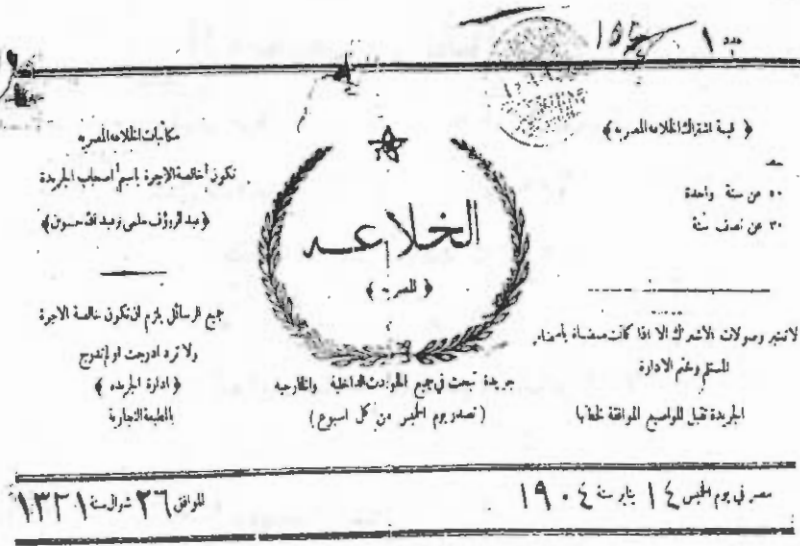 عدد ١
﴿ قيمة اشتراك الخلاعه المصريه ﴾
٥٠ عن سنة واحدة
٣٠ عن نصف سنة
لاتعتبر وصولات الاشتراك الا اذا كانت ممضاة بامضاء
المستلم وختم الادارة
الجريدة تقبل المواضيع الموافقة لخطتها
الخلاعه
﴿ المصريه ﴾
جريدة تبحث في جميع الحوادث الداخلية والخارجيه
(تصدر يوم الخميس من كل اسبوع)
مكاتبات الخلاعه المصريه
تكون خالصة الاجرة باسم اصحاب الجريدة
﴿عبد الرؤف حلمي وعبد الله حسين﴾
جميع الرسائل يلزم ان تكون خالصة الاجرة
ولا ترد ادرجت او لم تدرج
﴿ ادارة الجريده ﴾
بالمطبعة التجارية
مصر في يوم الخميس ١٤ يناير سنة ١٩٠٤
الموافق ٢٦ شوال سنة ١٣٢١